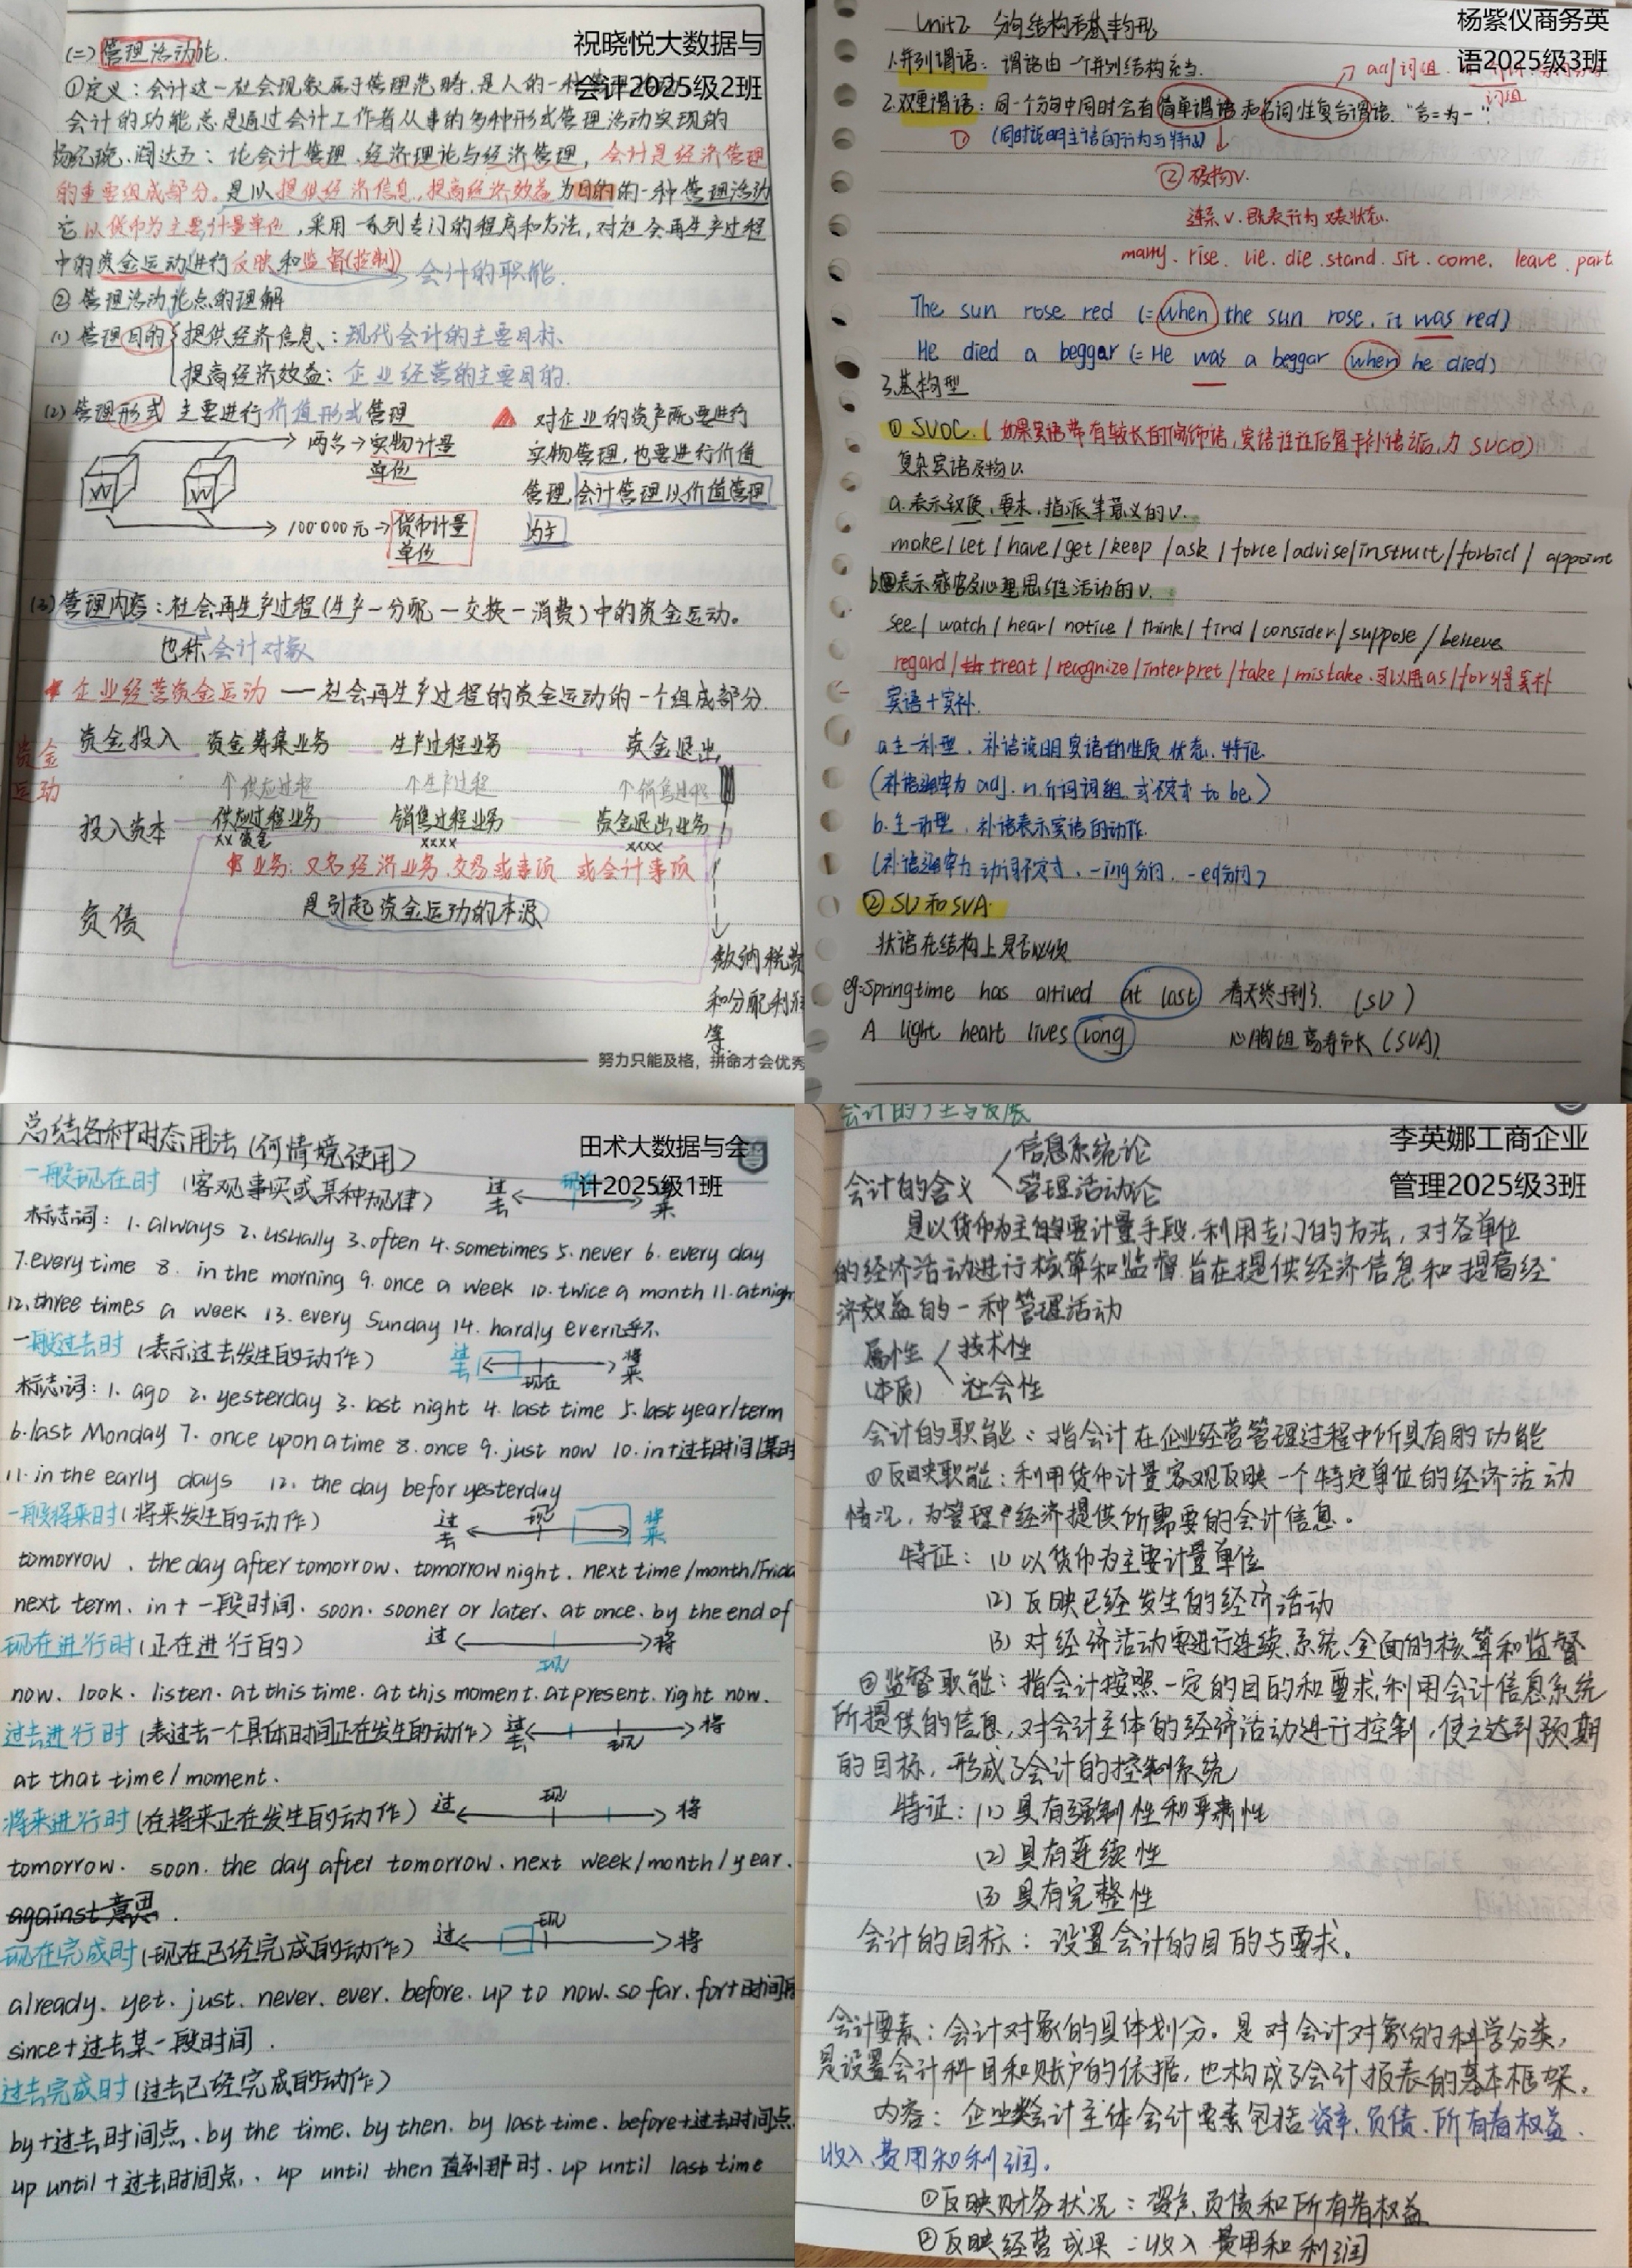 祝晓悦大数据与
会计2025级2班
(二)管理活动论
①定义:会计这一社会现象属于管理范畴,是人的一种
会计的功能总是通过会计工作者从事的多种形式管理活动实现的
杨纪琬、阎达五:论会计管理、经济理论与经济管理,会计是经济管理
的重要组成部分。是以提供经济信息,提高经济效益为目的的一种管理活动
它以货币为主要计量单位,采用一系列专门的程序和方法,对社会再生产过程
中的资金运动进行反映和监督(控制) 会计的职能.
②管理活动论点的理解
(1)管理目的 提供经济信息、:现代会计的主要目标、
提高经济效益:企业经营的主要目的.
(2)管理形式 主要进行价值形式管理
两台→实物计量
单位
100'000元→货币计量
单位
对企业的资产既要进行
实物管理,也要进行价值
管理,会计管理以价值管理
为主
(3)管理内容:社会再生产过程(生产—分配—交换—消费)中的资金运动。
也称会计对象
企业经营资金运动——社会再生产过程的资金运动的一个组成部分.
资金
运动
资金投入 资金筹集业务 生产过程业务 资金退出
↑供应过程 ↑生产过程 ↑销售过程
投入资本 供应过程业务 销售过程业务 资金退出业务
xxxx xxxx
业务:又名经济业务、交易或事项 或会计事项
负债 是引起资金运动的本源
缴纳税费
和分配利润
等.
努力只能及格,拼命才会优秀
杨紫仪商务英
语2025级3班
Unit2 分句结构和基本句型
1.并列谓语:谓语由一个并列结构充当.
adj词组.
词组
2.双重谓语:同一个分句中同时含有简单谓语和名词性复合谓语."合二为一":
① (同时说明主语的行为与特征)
②双构V.
连系V.既表行为又表状态.
marry. rise. lie. die. stand. sit. come. leave. part
The sun rose red (=when the sun rose, it was red)
He died a beggar (=He was a beggar when he died)
3.基本句型
①SVOC.(如果宾语带有较长的修饰语,宾语往往后置于补语之后,为SVCO)
复杂宾语及物V.
a.表示致使,要求,指派等意义的V.
make/let/have/get/keep/ask/force/advise/instruct/forbid/appoint
b.表示感官及心理思维活动的V.
see/watch/hear/notice/think/find/consider/suppose/believe
regard/treat/recognize/interpret/take/mistake.可以用as/for引导宾补
宾语+宾补.
a.主—补型,补语说明宾语的性质,状态,特征
(补语通常为adj.n.介词词组或不定式to be)
b.主—动型,补语表示宾语的动作.
(补语通常为动词不定式、-ing分词、-ed分词)
②SV和SVA.
状语在结构上是否必须
eg:Springtime has arrived at last 春天终于到了. (SV)
A light heart lives long 心胸坦荡寿命长(SVA)
田术大数据与会
计2025级1班
总结各种时态用法(何情境使用)
一般现在时 (客观事实或某种规律) 过去 现在 将来
标志词:1.always 2.usually 3.often 4.sometimes 5.never 6.every day
7.every time 8. in the morning 9. once a week 10. twice a month 11. at nigh
12.three times a week 13. every Sunday 14. hardly ever几乎不
一般过去时 (表示过去发生的动作) 过去 现在 将来
标志词:1. ago 2. yesterday 3. last night 4. last time 5. last year/term
6.last Monday 7. once upon a time 8. once 9. just now 10. in+过去时间/某时
11.in the early days 12. the day befor yesterday
一般将来时(将来发生的动作) 过去 现 将来
tomorrow、the day after tomorrow、tomorrow night、next time/month/Frida
next term、in+一段时间、soon、sooner or later、at once、by the end of
现在进行时(正在进行的) 过 现 将
now、look、listen、at this time、at this moment、at present、right now.
过去进行时(表过去一个具体时间正在发生的动作) 过去 现 将
at that time/moment.
将来进行时(在将来正在发生的动作) 过 现 将
tomorrow. soon. the day after tomorrow. next week/month/year.
against意思.
现在完成时(现在已经完成的动作) 过 现 将
already、yet、just、never、ever、before、up to now、so far、for+时间段
since+过去某一段时间.
过去完成时(过去已经完成的动作)
by+过去时间点、by the time、by then、by last time、before+过去时间点、
up until+过去时间点、up until then直到那时、up until last time
李英娜工商企业
管理2025级3班
会计的产生与发展
会计的含义 信息系统论
管理活动论
是以货币为主的要计量手段,利用专门的方法,对各单位
的经济活动进行核算和监督,旨在提供经济信息和提高经
济效益的一种管理活动
属性 技术性
(本质) 社会性
会计的职能:指会计在企业经营管理过程中所具有的功能
①反映职能:利用货币计量客观反映一个特定单位的经济活动
情况,为管理经济提供所需要的会计信息。
特征:(1)以货币为主要计量单位
(2)反映已经发生的经济活动
(3)对经济活动要进行连续、系统、全面的核算和监督
②监督职能:指会计按照一定的目的和要求,利用会计信息系统
所提供的信息,对会计主体的经济活动进行控制,使之达到预期
的目标,形成了会计的控制系统
特征:(1)具有强制性和严肃性
(2)具有连续性
(3)具有完整性
会计的目标:设置会计的目的与要求。
会计要素:会计对象的具体划分。是对会计对象的科学分类,
是设置会计科目和账户的依据,也构成了会计报表的基本框架。
内容:企业类会计主体会计要素包括资产、负债、所有者权益、
收入、费用和利润。
①反映财务状况:资产、负债和所有者权益
②反映经营成果:收入、费用和利润